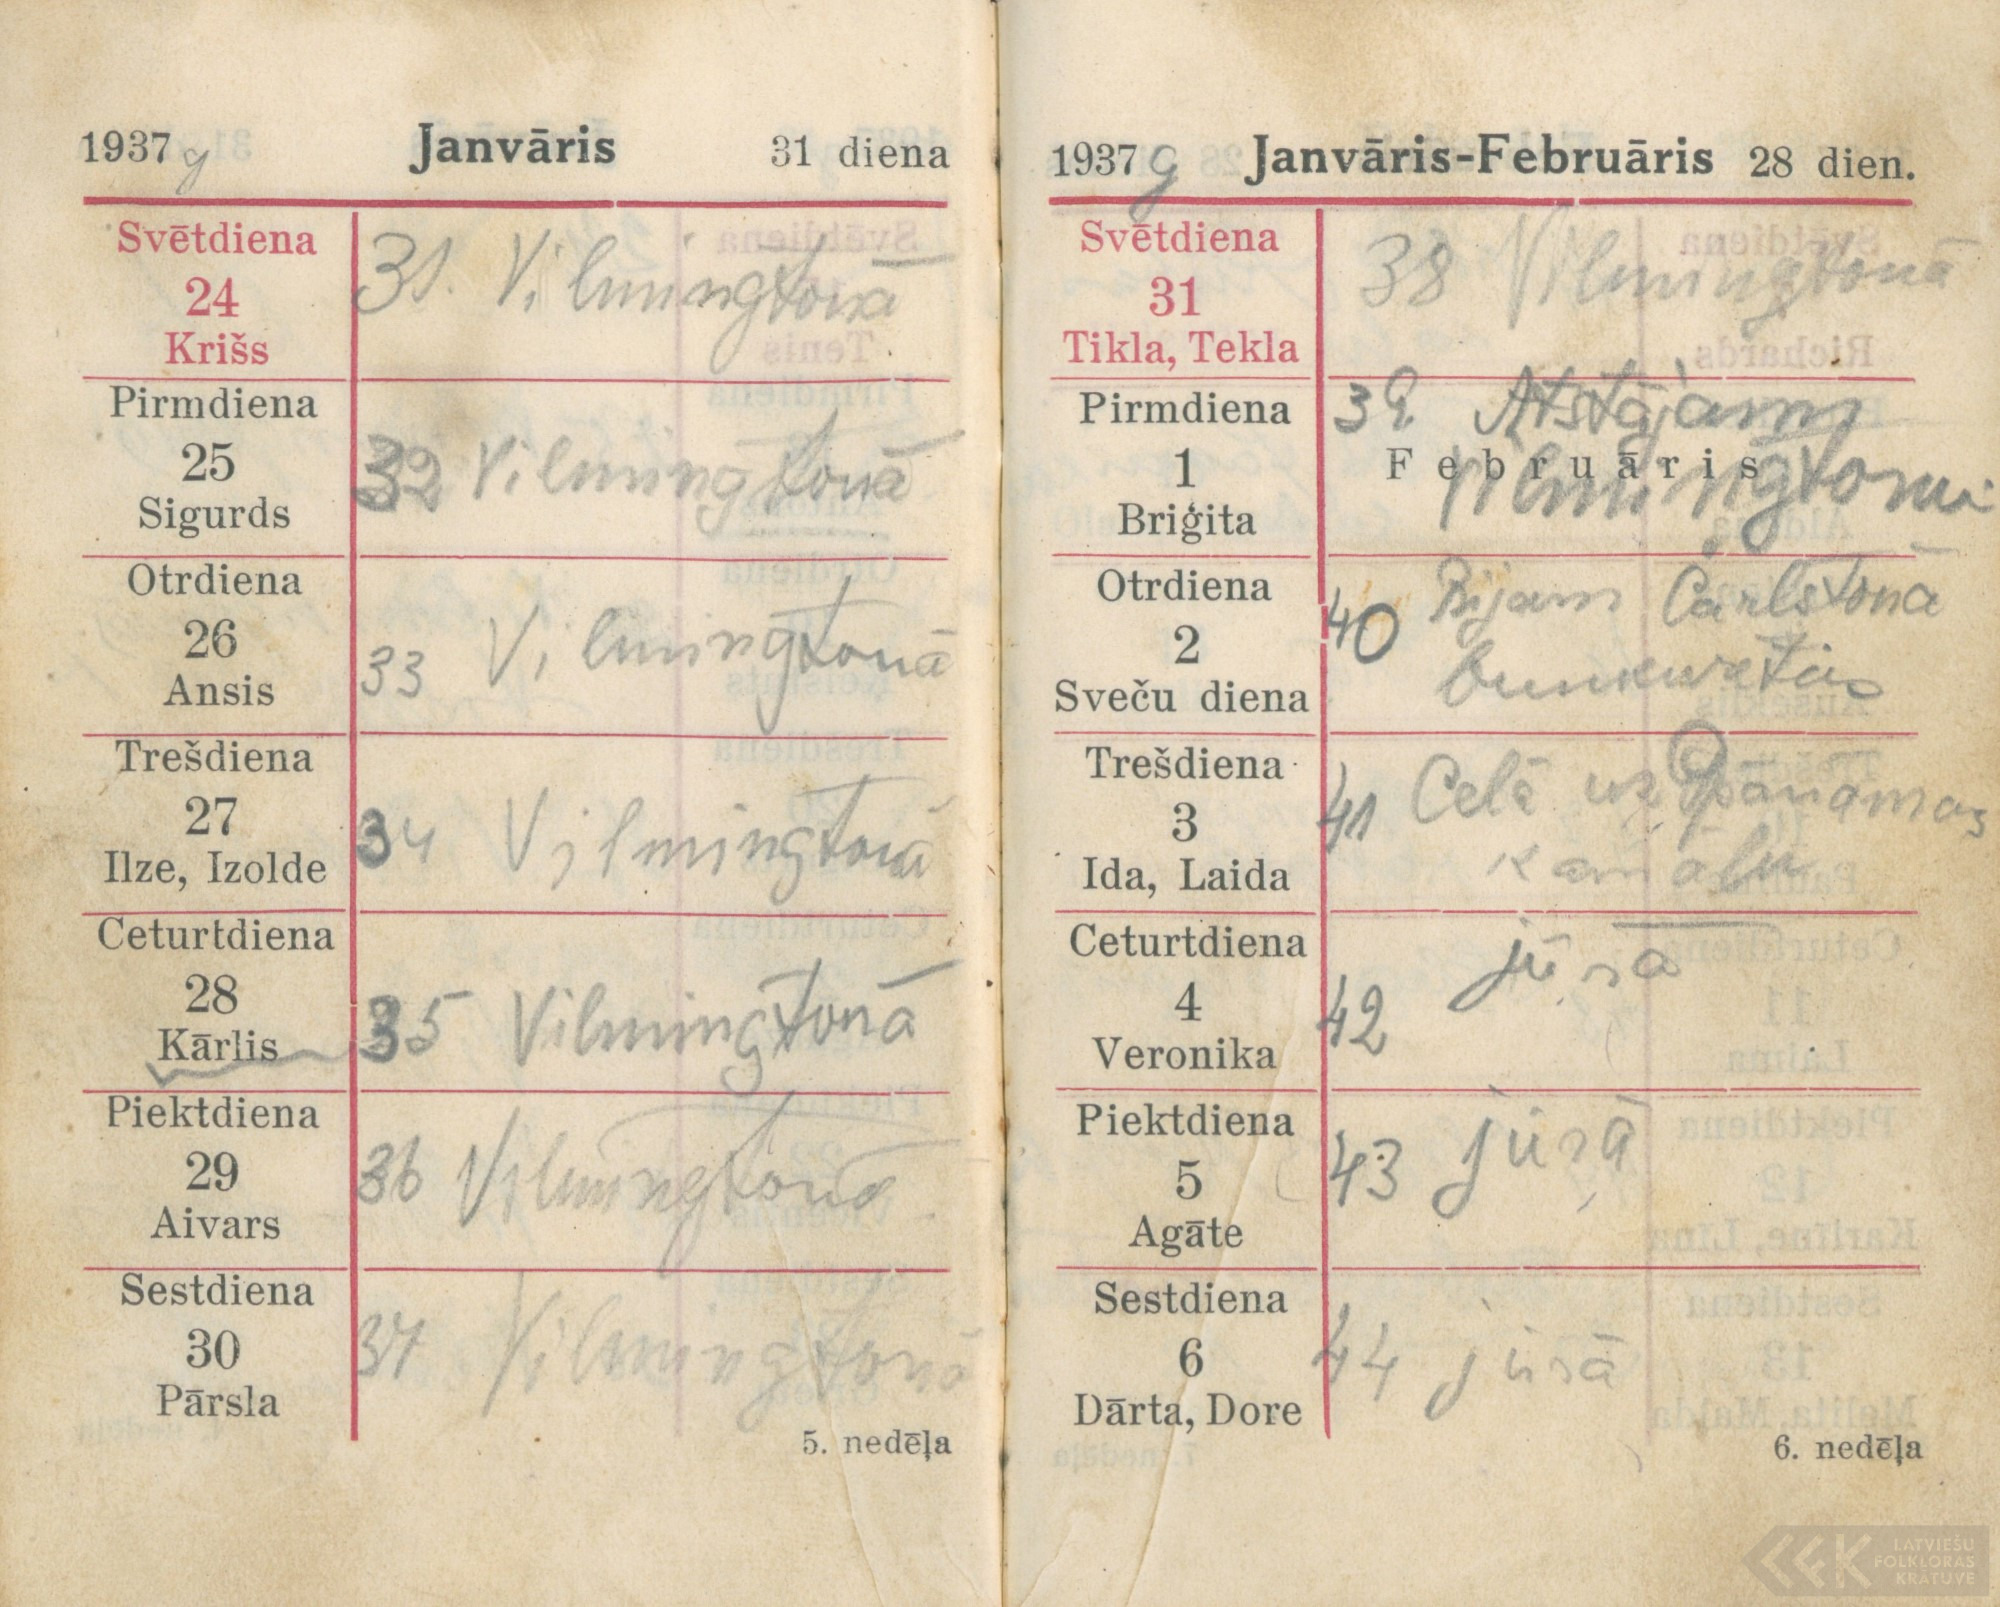 1937 g Janvāris 31 diena
Svētdiena
24
Krišs
31. Vilmingtonā
Pirmdiena
25
Sigurds
32 Vilmingtonā
Otrdiena
26
Ansis
33 Vilmingtonā
Trešdiena
27
Ilze, Izolde
34 Vilmingtonā
Ceturtdiena
28
Kārlis
35 Vilmingtonā
Piektdiena
29
Aivars
36 Vilmingtonā
Sestdiena
30
Pārsla
37 Vilmingtonā
5. nedēļa
1937 g Janvāris-Februāris 28 dien.
Svētdiena
31
Tikla, Tekla
38 Vilmingtonā
Pirmdiena
1
Briģita
39 Atstājam
Februāris
Vilmingtonu
Otrdiena
2
Sveču diena
40 Bijam Čarlstonā
bunkurētās
Trešdiena
3
Ida, Laida
41 Ceļā uz Panamas
kanālu
Ceturtdiena
4
Veronika
42 jūrā
Piektdiena
5
Agāte
43 jūrā
Sestdiena
6
Dārta, Dore
44 jūrā
6. nedēļa
LATVIEŠU
FOLKLORAS
KRĀTUVE